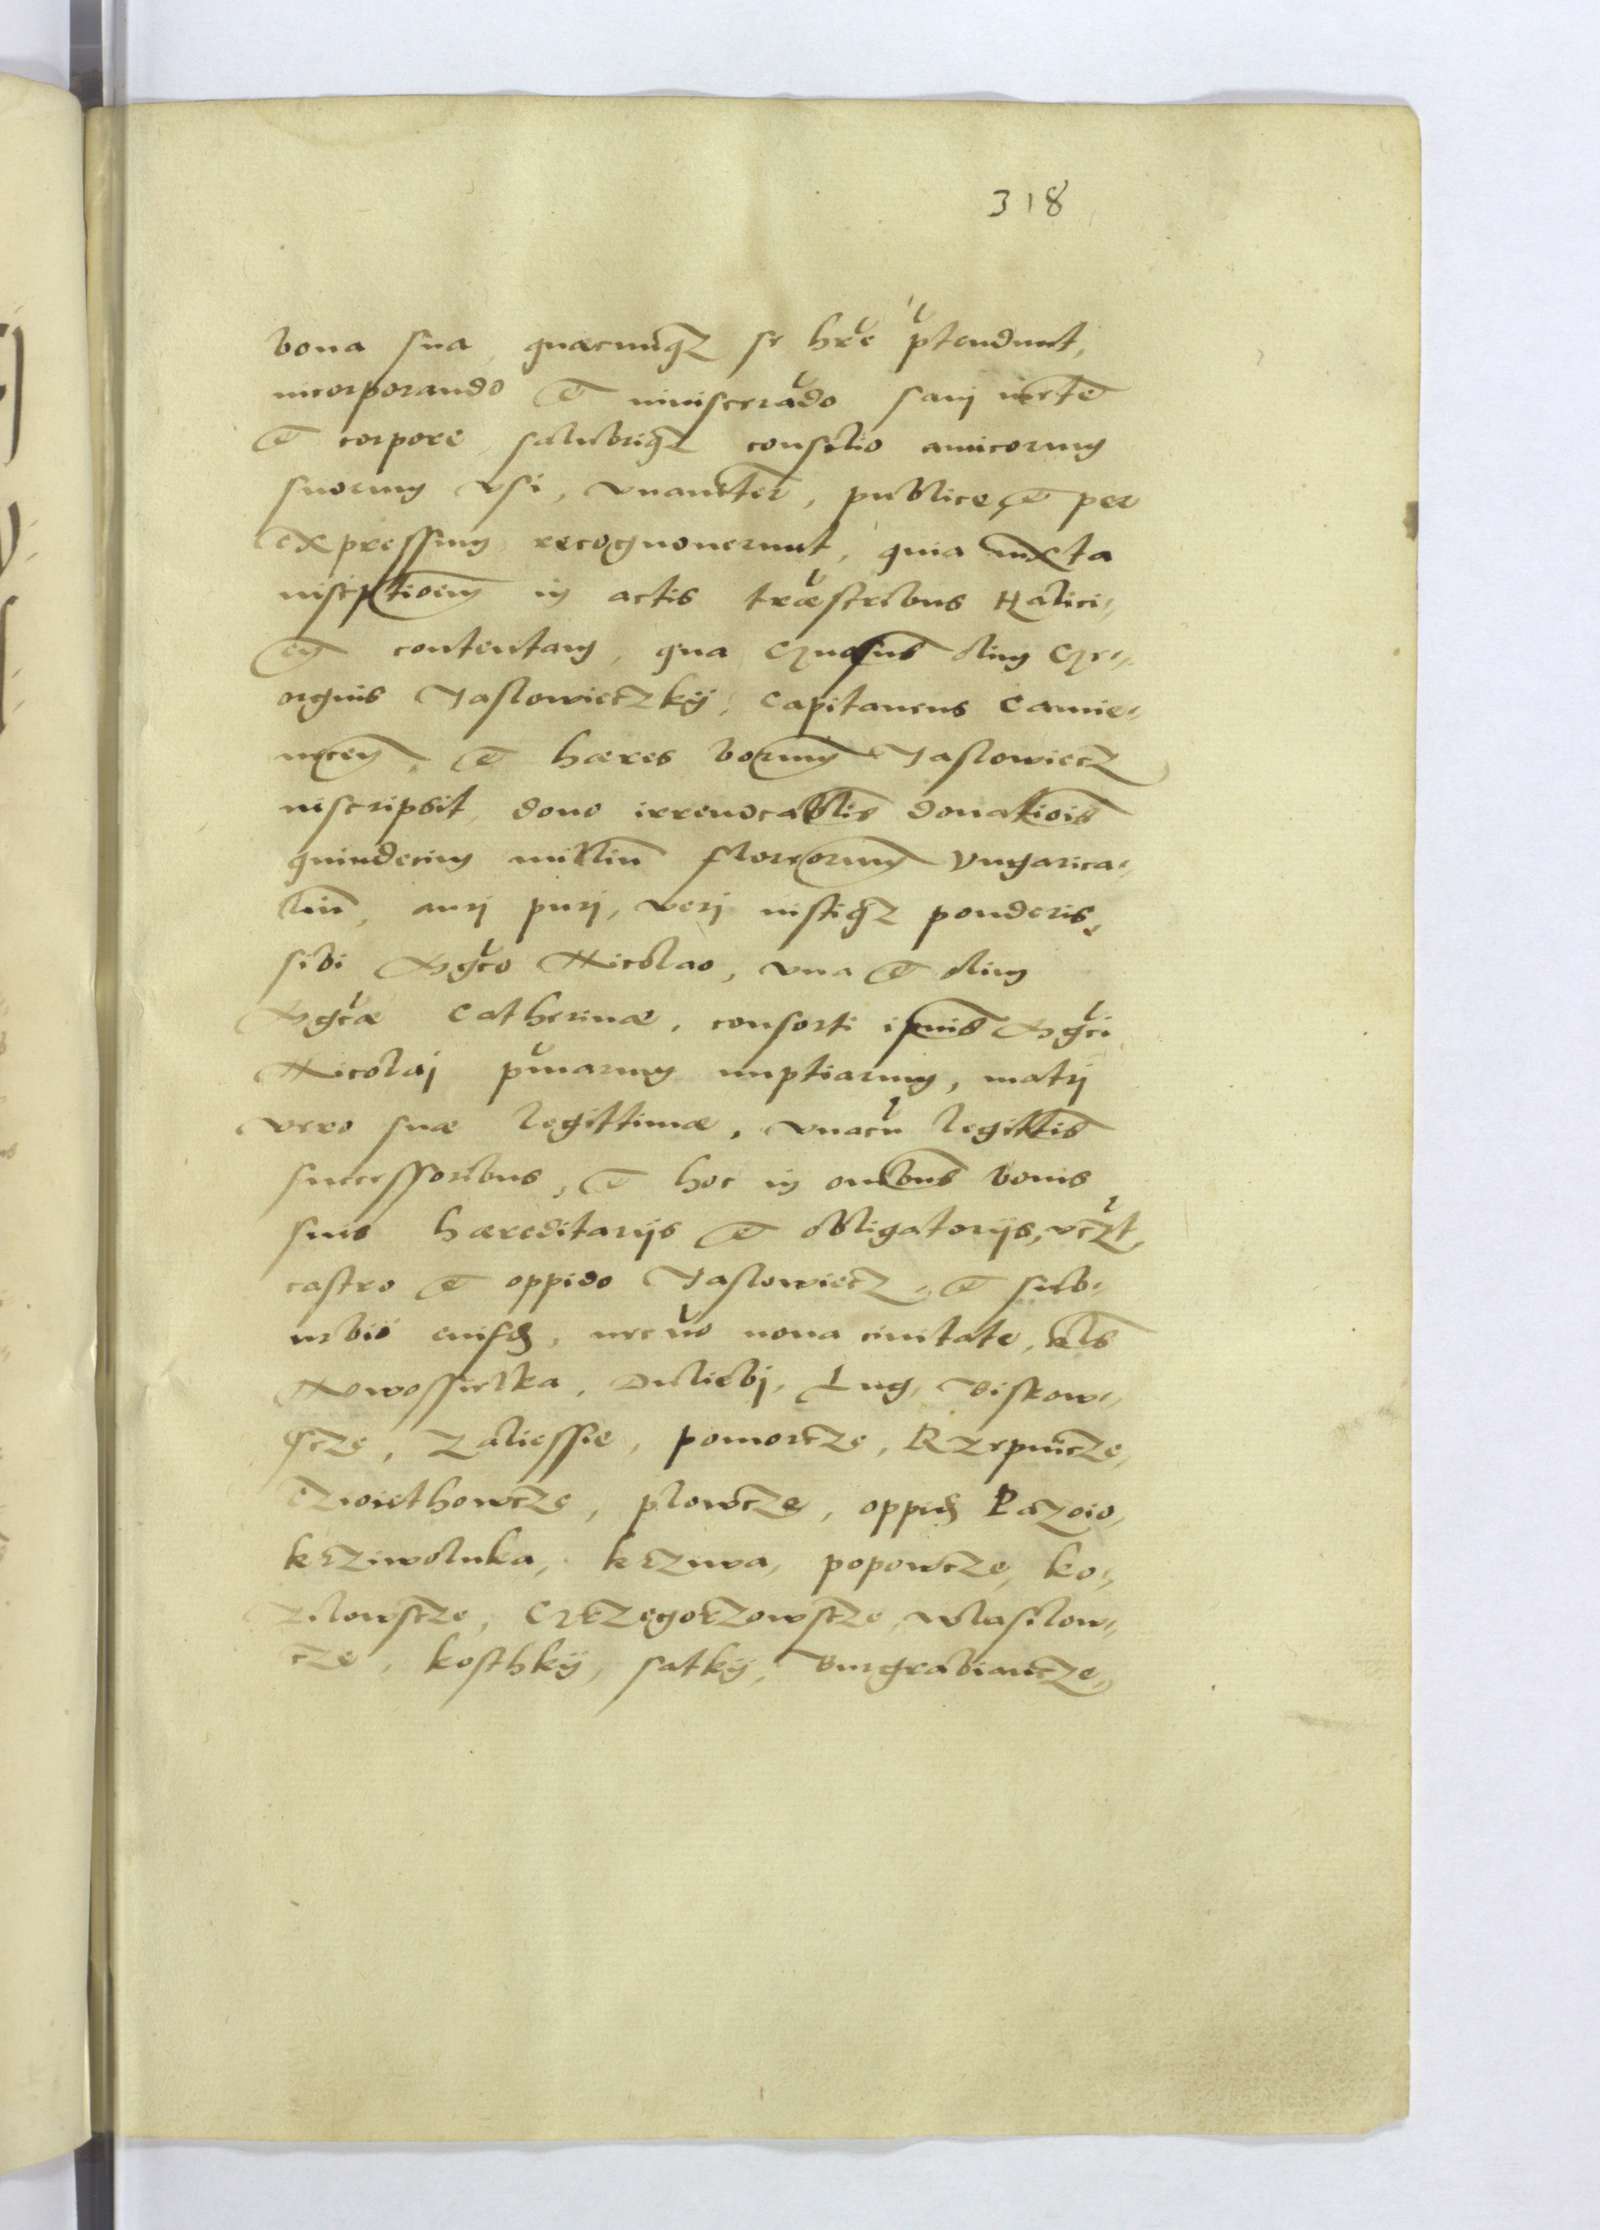 318
bona sua, quæcunq₃ se hr̃e p̃tendunt,
incorporando et inviscerãdo sanj mẽte
et corpore, salubriq₃ consilio amicorum
suorum vsi, vnamiter, publice et per
expressum recognouerunt, quia iuxta
inscrptioem in actis trr̃æstribus Halici-
en contentam, qua Gn̄osus olim Ge-
orgius Jaslowieczkÿ, Capitaneus Camie-
nicen, et hæres bonorum Jaslowiecz
inscripsit, dono irreuocablis donatiois
quindecim milliũ florenorum Vngarica-
liũ, aurj purj, verj iustiq₃ ponderis,
sibi Mg̃co Nicolao, vna et olim
Mg̃cæ Catherinæ, consorti ipsius Mg̃ci
Nicolaj p̃marum nuptiarum, matrj
vero suæ legittimæ, vnacũ legittis
successoribus, et hoc in omibus bonis
suis hæreditarijs et obligatorijs, včzt,
castro et oppido Jaslowiecz, et sub-
urbio eiusd, nec nõ noua ciuitate, als
Nowossielka, Duliebj, Lug, Biskow-
scze, Zaliessie, pomorcze, Rzepincze,
Czwiethowcze, plowcze, oppid
krziwoluka, popowcze, ko-
zilowscze, Grzegorzowscze, wlasilow-
cze, kosthkÿ, satkÿ, Burgrabiancze,